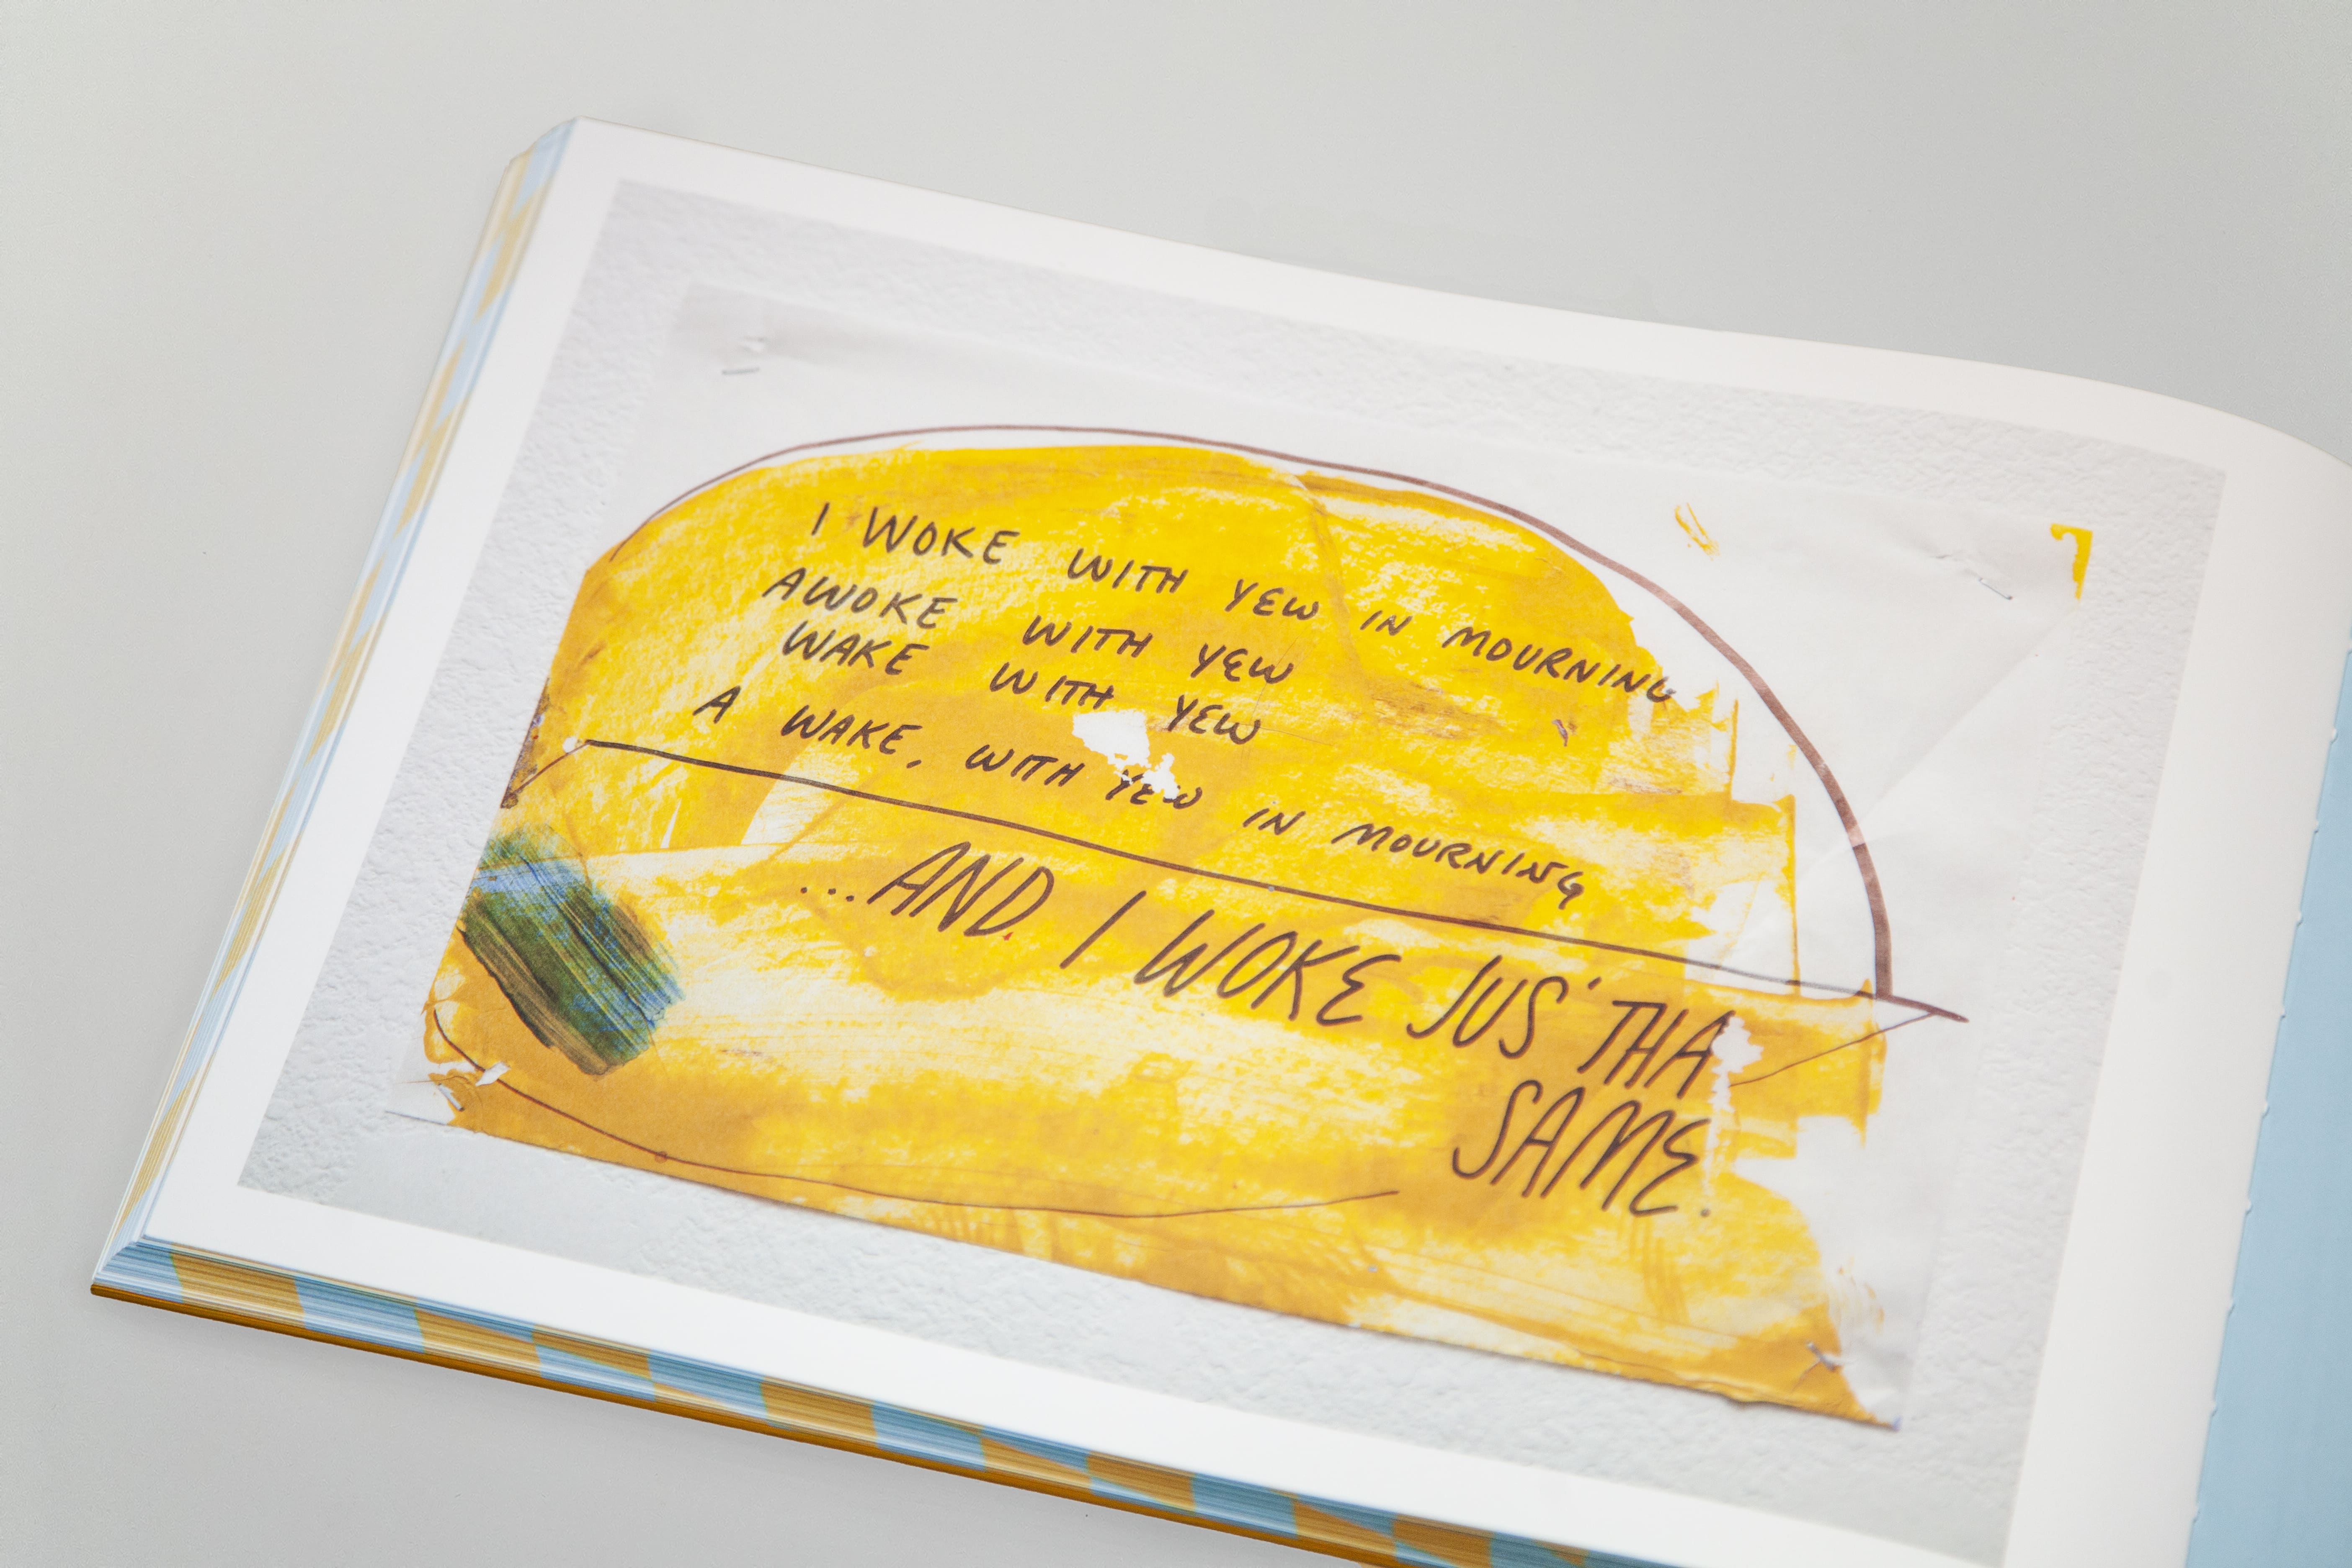 I WOKE WITH YEW IN MOURNING
AWOKE WITH YEW
WAKE WITH YEW
A WAKE, WITH YEW IN MOURNING
...AND I WOKE JUS' THA
SAME.